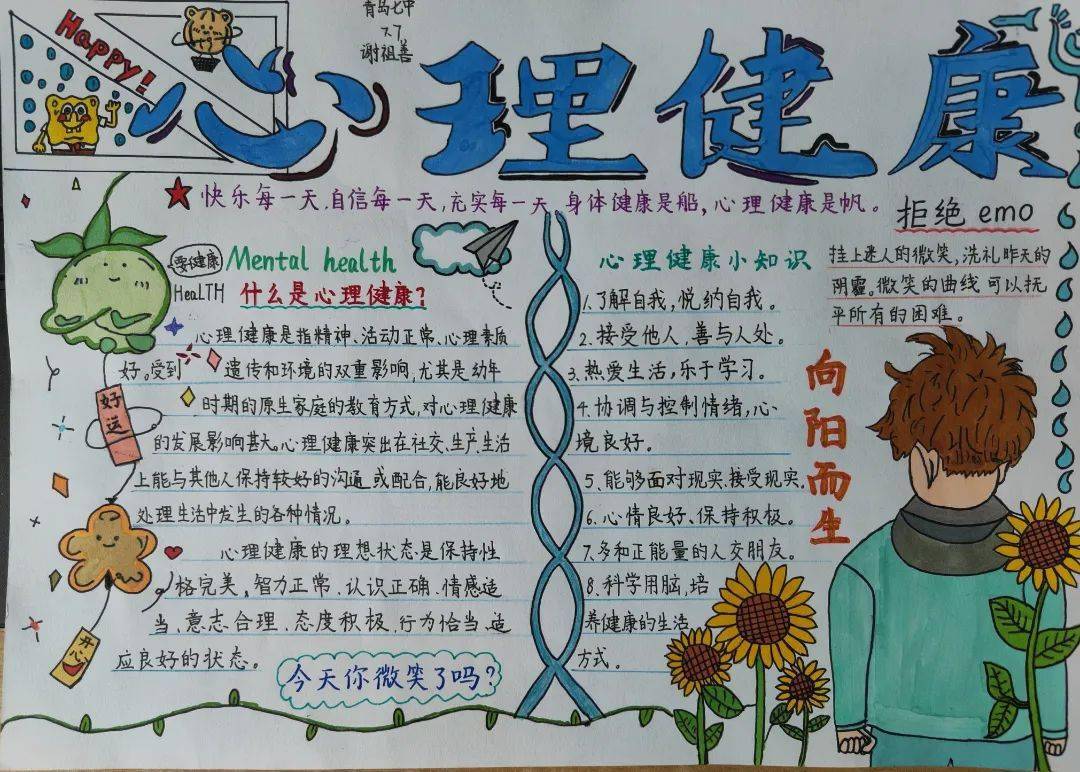 青岛七中
7.7
谢祖善
Happy!
心理健康
快乐每一天,自信每一天,充实每一天 身体健康是船,心理健康是帆。
要健康
HeaLTH
Mental health
什么是心理健康?
心理健康是指精神、活动正常、心理素质
好。受到 遗传和环境的双重影响,尤其是幼年
时期的原生家庭的教育方式,对心理健康
的发展影响甚大。心理健康突出在社交、生产、生活
上能与其他人保持较好的沟通或配合,能良好地
处理生活中发生的各种情况。
心理健康的理想状态是保持性
格完美,智力正常、认识正确、情感适
当、意志合理、态度积极,行为恰当、适
应良好的状态。
好运
开心
今天你微笑了吗?
心理健康小知识
1.了解自我,悦纳自我。
2.接受他人,善与人处。
3.热爱生活,乐于学习。
4.协调与控制情绪,心
境良好。
5、能够面对现实、接受现实
6.心情良好、保持积极。
7.多和正能量的人交朋友。
8.科学用脑,培
养健康的生活
方式。
拒绝 emo
挂上迷人的微笑,洗礼昨天的
阴霾。微笑的曲线可以抚
平所有的困难。
向阳而生